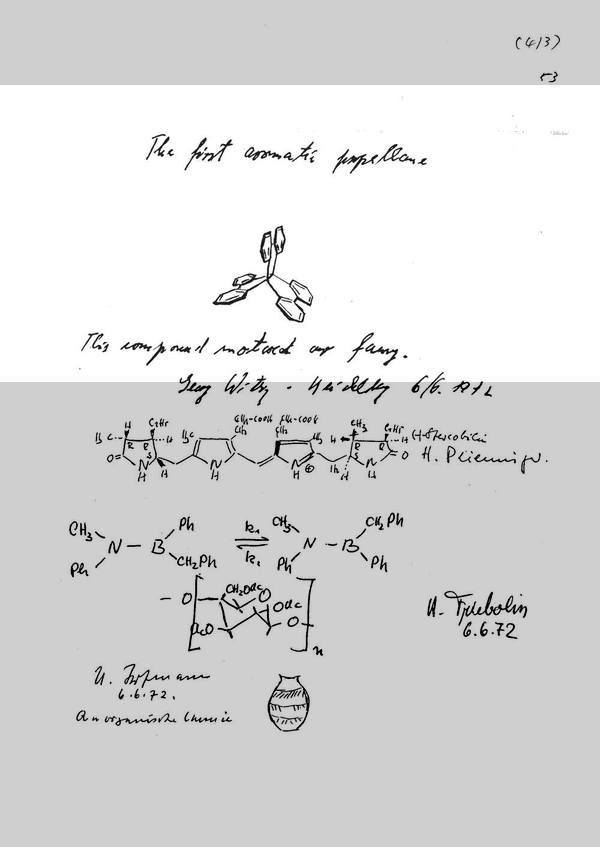 (413)
53
The first aromatic propellane
This compound motived our fancy.
Georg Wittig - Heidelberg 6/6. 1972
H C2H5 H3C CH2-COOH CH2-COOH CH3 C2H5
H3C H CH2 CH2 CH3 H H (-)-Stercobilin
O= R R S N H N H N H ⊕ H2 S R R N H =O H. Plieninger.
CH3 Ph k1 CH3 CH2Ph
N — B ⇌ N — B
Ph CH2Ph k2 Ph Ph
CH2OAc
— O O OAc
AcO O — n
H. Friebolin
6.6.72
U. Hofmann
6.6.72.
Anorganische Chemie